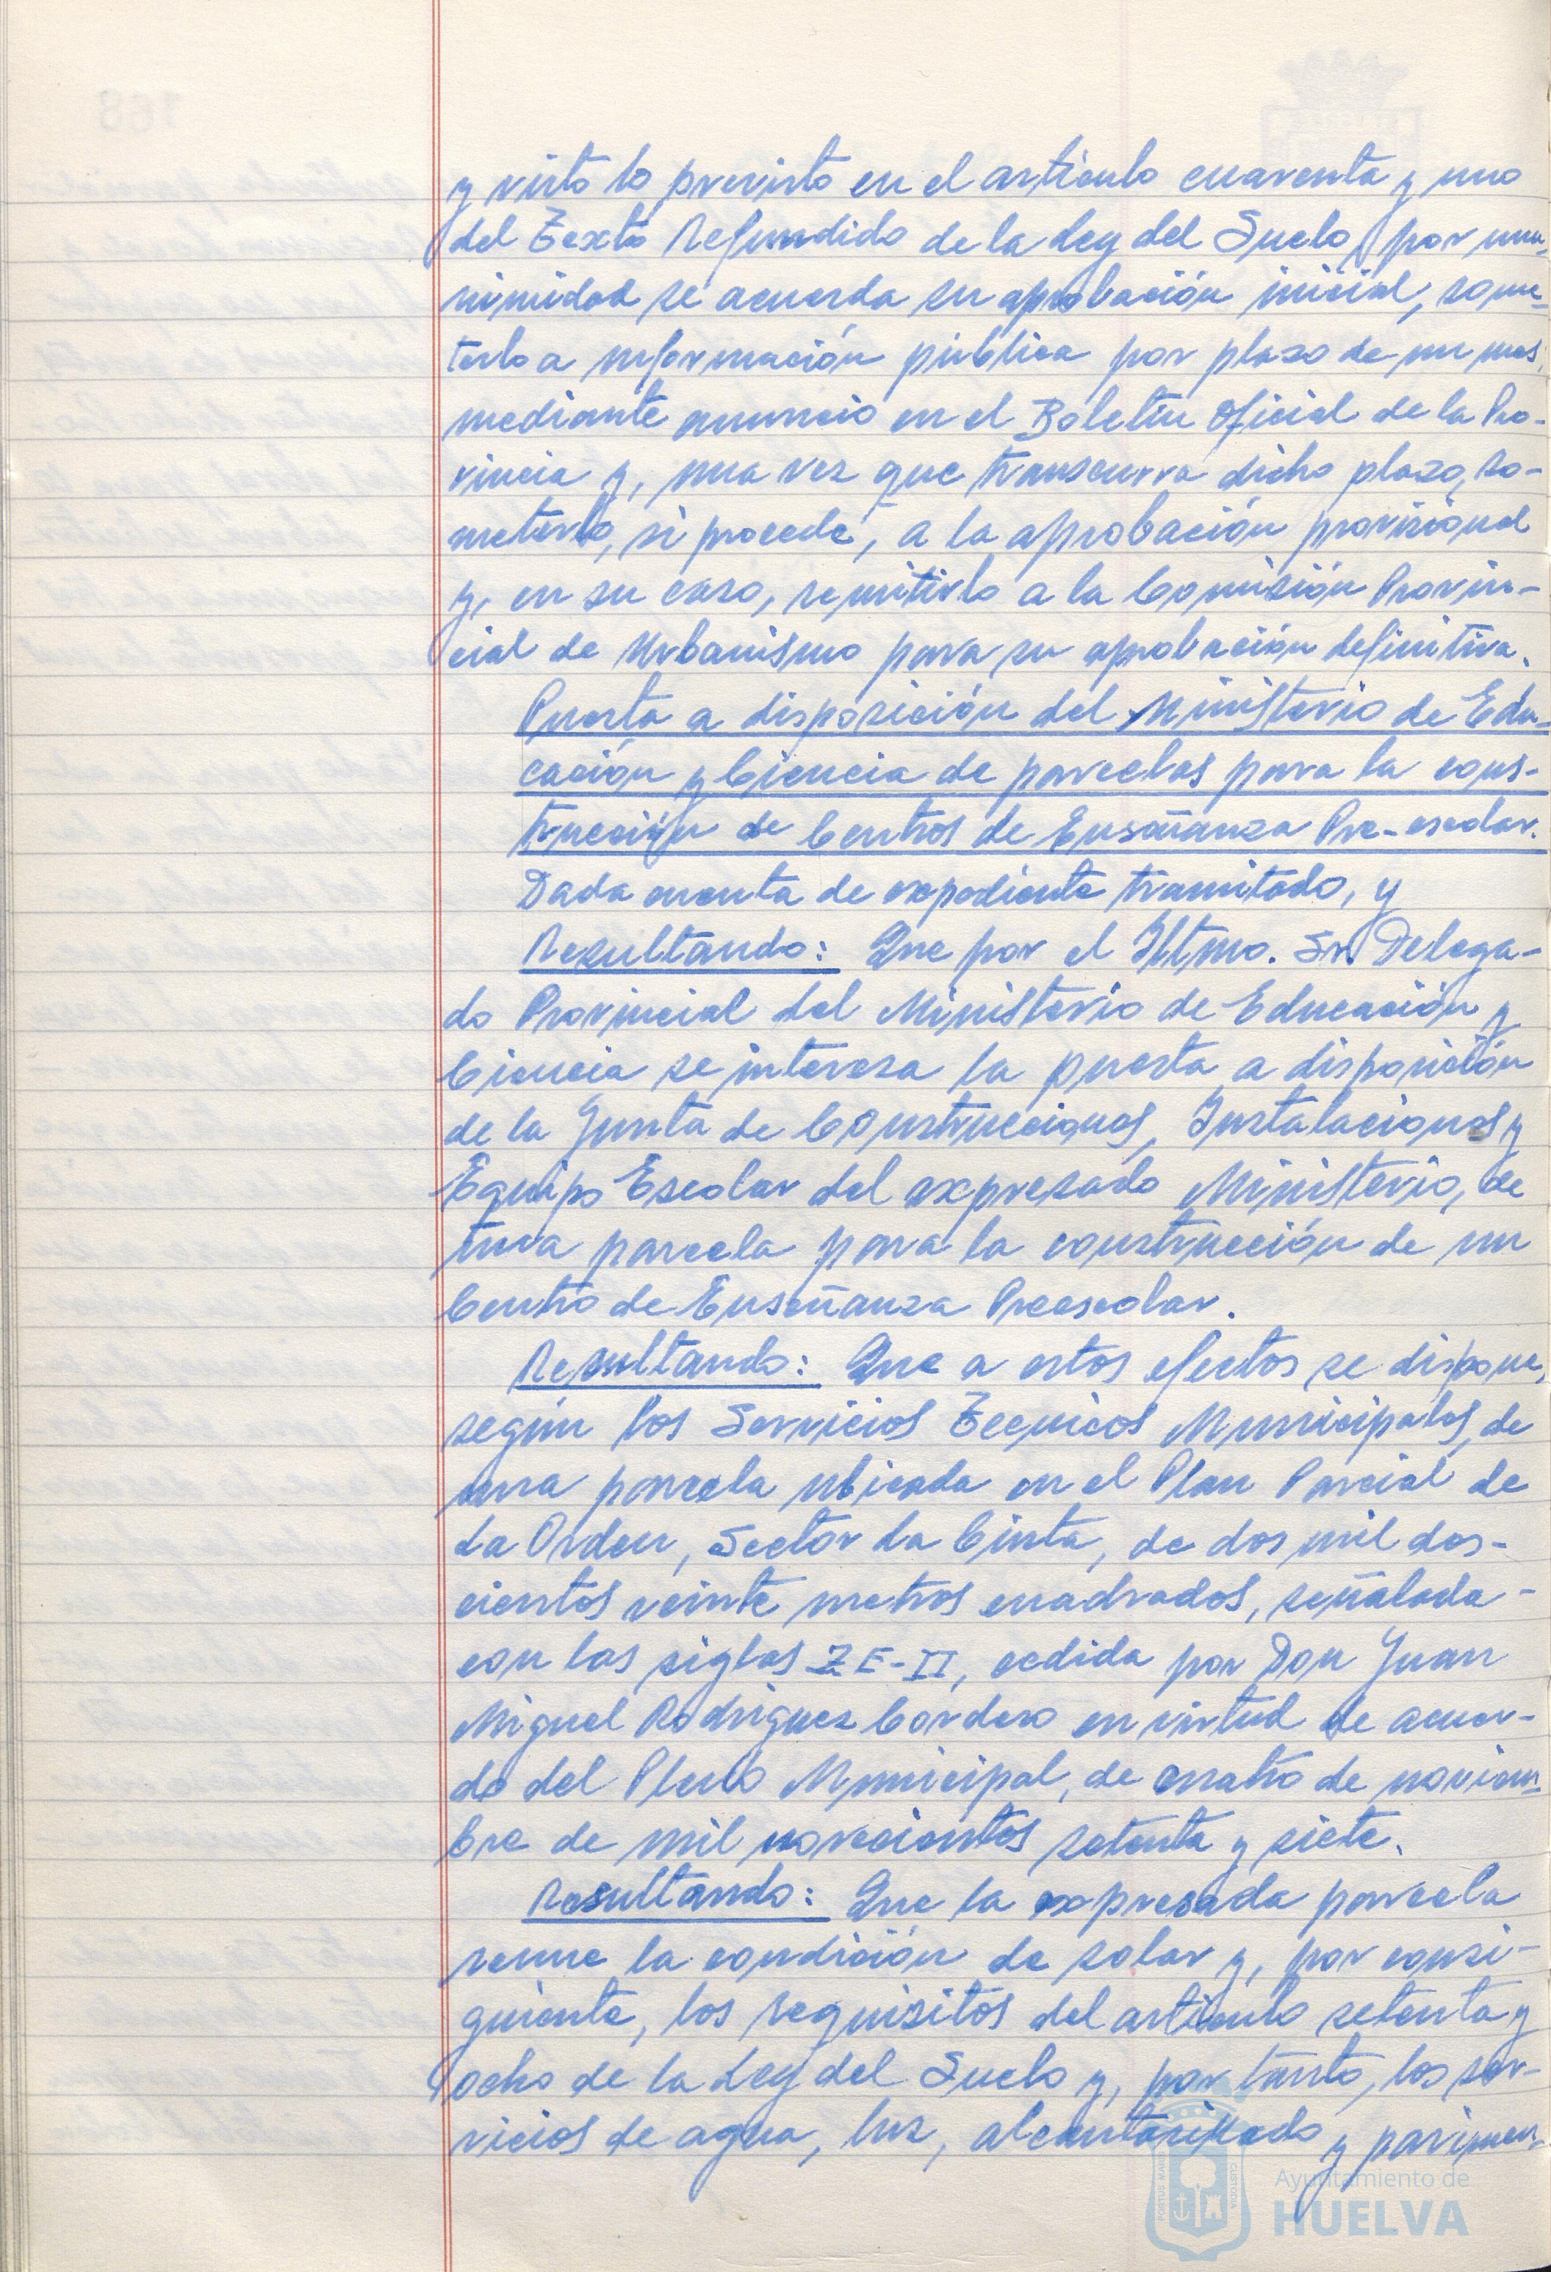 y visto lo previsto en el artículo cuarenta y uno
del Texto Refundido de la Ley del Suelo, por una-
nimidad se acuerda su aprobación inicial, some-
terlo a información pública por plazo de un mes,
mediante anuncio en el Boletín Oficial de la Pro-
vincia y, una vez que transcurra dicho plazo, so-
meterlo, si procede, a la aprobación provisional
y, en su caso, remitirlo a la Comisión Provin-
cial de Urbanismo para su aprobación definitiva.
Puesta a disposición del Ministerio de Edu-
cación y Ciencia de parcelas para la cons-
trucción de Centros de Enseñanza Pre-escolar.
Dada cuenta de expediente tramitado, y
Resultando: Que por el Iltmo. Sr. Delega-
do Provincial del Ministerio de Educación y
Ciencia se interesa la puesta a disposición
de la Junta de Construcciones, Instalaciones y
Equipo Escolar del expresado Ministerio, de
una parcela para la construcción de un
Centro de Enseñanza Preescolar.
Resultando: Que a estos efectos se dispone,
según los Servicios Tecnicos Municipales, de
una parcela ubicada en el Plan Parcial de
La Orden, Sector La Cinta, de dos mil dos-
cientos veinte metros cuadrados, señalada-
con las siglas ZE-II, cedida por Don Juan
Miguel Rodriguez Cordero en virtud de acuer-
do del Pleno Municipal, de cuatro de noviem-
bre de mil novecientos setenta y siete.
Resultando: Que la expresada parcela
reune la condición de solar y, por consi-
guiente, los requisitos del artículo setenta y
ocho de la Ley del Suelo y, por tanto, los ser-
vicios de agua, luz, alcantarillado y pavimen-
Ayuntamiento de
HUELVA